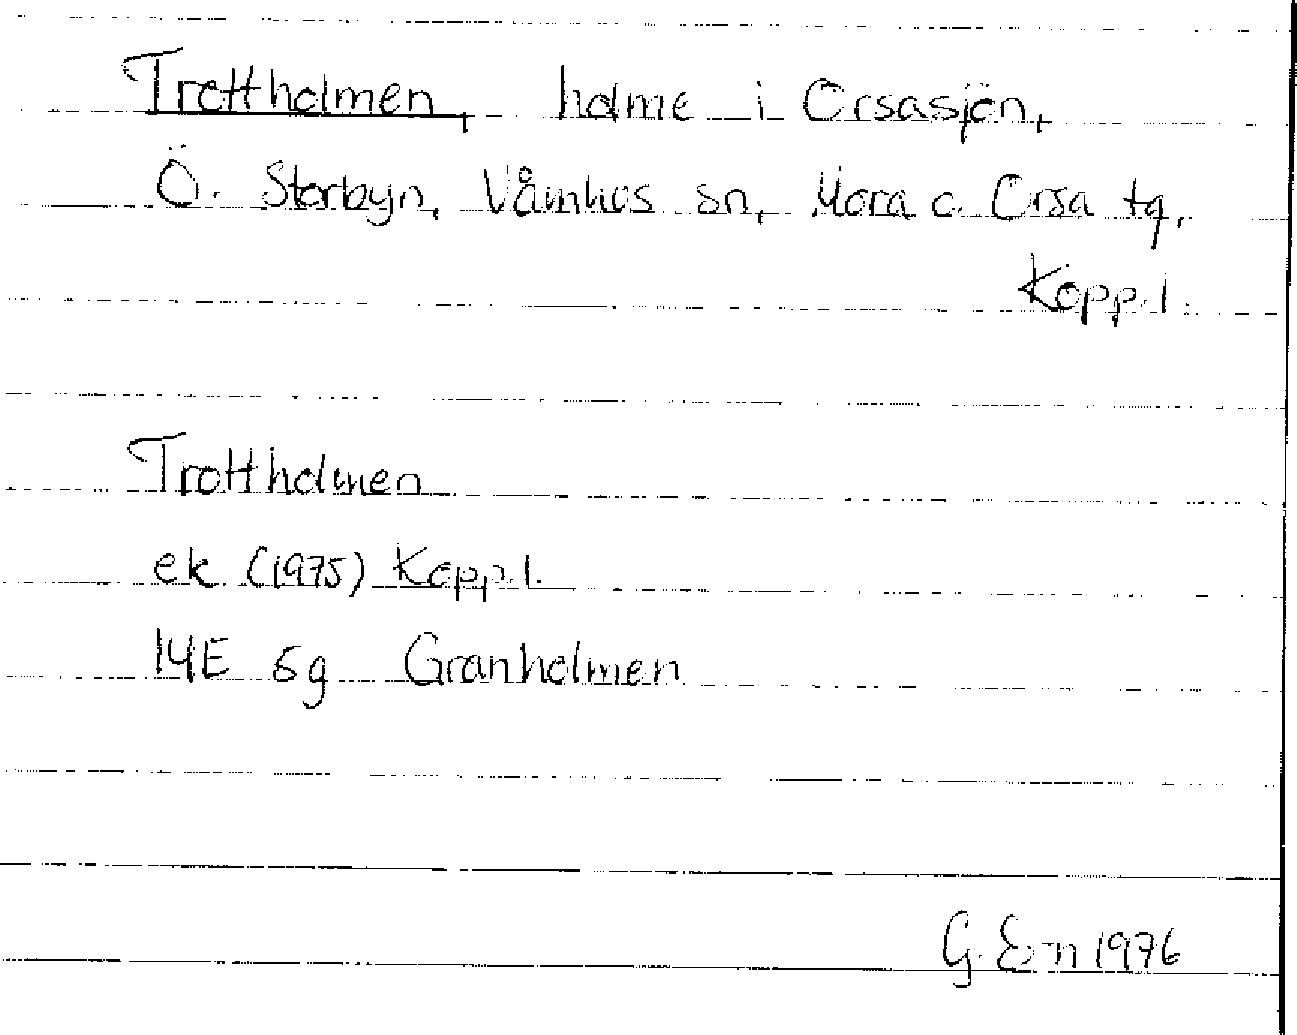 Trottholmen, holme i Orsasjön,
Ö. Storbyn, Våmhus sn, Mora o. Orsa tg,
Kopp. l.
Trottholmen
ek (1975) Kopp. l.
14E 5g Granholmen
G. E-n 1976